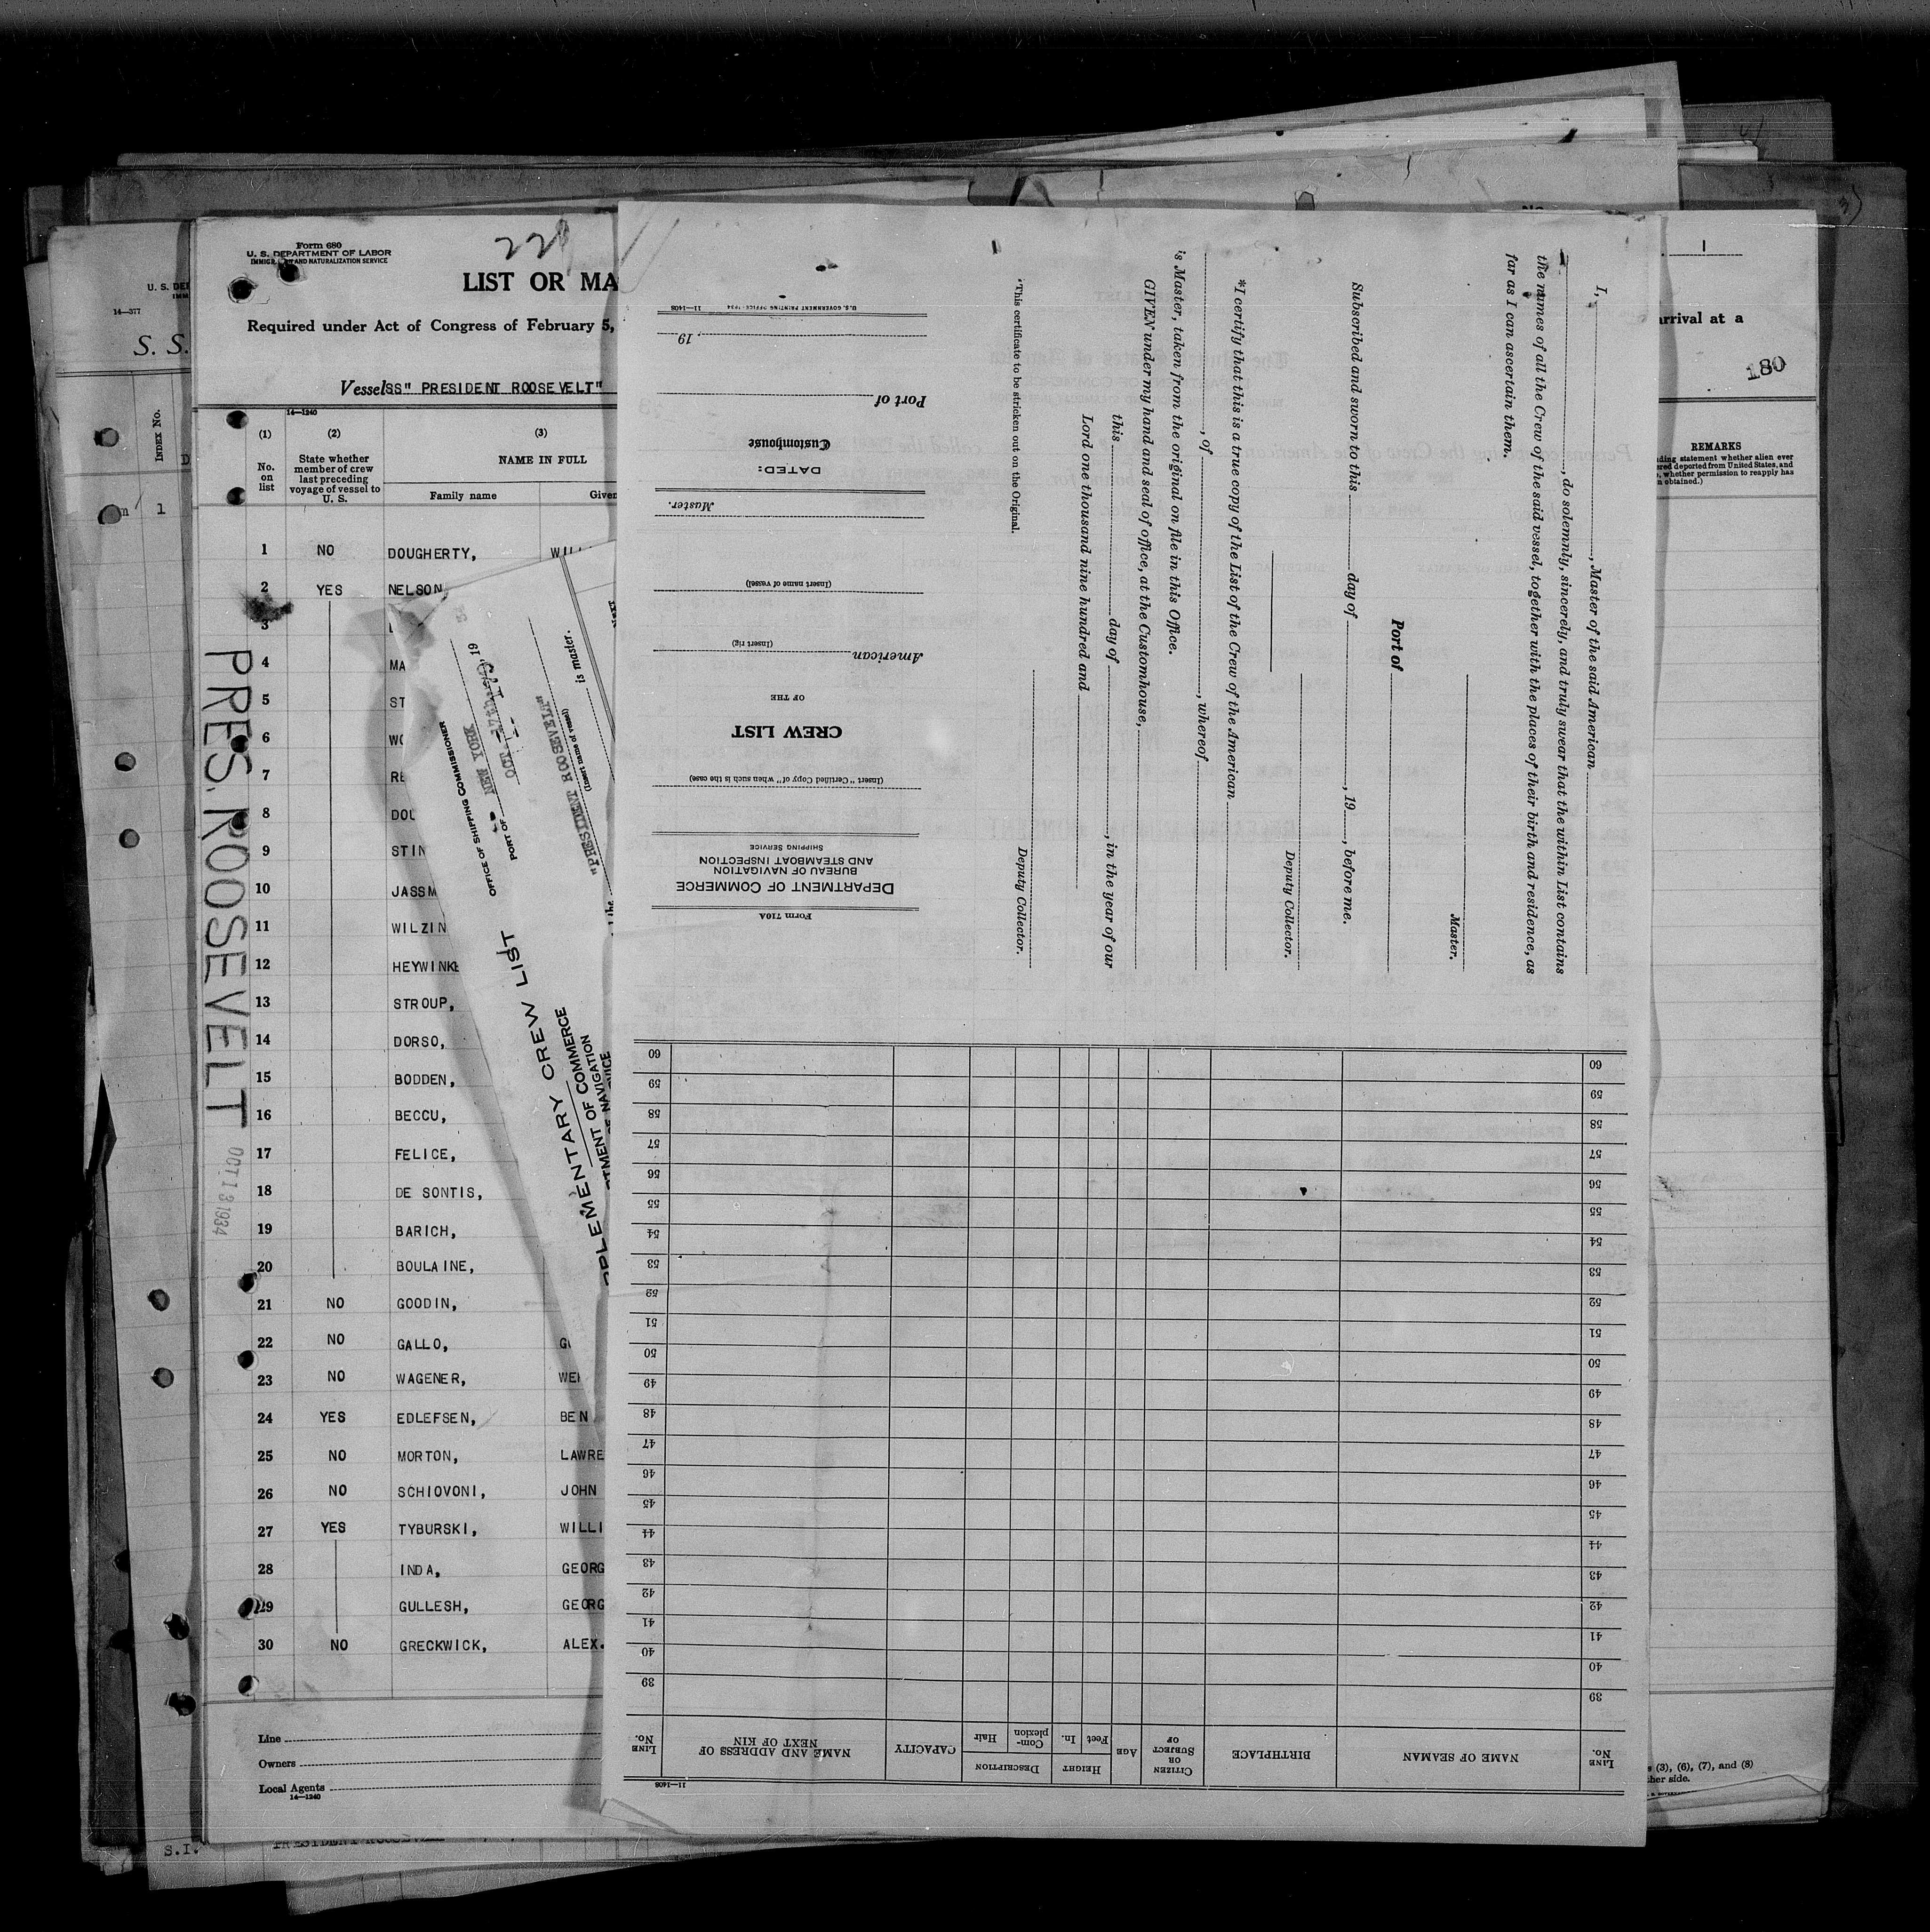 Form 680
U. S. DEPARTMENT OF LABOR
AND NATURALIZATION SERVICE
LIST OR MA
Required under Act of Congress of February 5,
Vessel SS" PRESIDENT ROOSEVELT"
14—1240
(1) (2) (3)
No. on list
State whether member of crew last preceding voyage of vessel to U. S.
NAME IN FULL
Family name Given
1 NO DOUGHERTY,
2 YES NELSON
3
4 MA
5 ST
6
7 RE
8 DOU
9 STIN
10 JASSM
11 WILZIN
12 HEYWINKE
13 STROUP,
14 DORSO,
15 BODDEN,
16 BECCU,
17 FELICE,
18 DE SONTIS,
19 BARICH,
20 BOULAINE,
21 NO GOODIN,
22 NO GALLO,
23 NO WAGENER,
24 YES EDLEFSEN, BEN
25 NO MORTON, LAWRE
26 NO SCHIOVONI, JOHN
27 YES TYBURSKI, WILLI
28 INDA, GEORG
29 GULLESH, GEORG
30 NO GRECKWICK, ALEX.
Line
Owners
Local Agents
14—1240
PRES. ROOSEVELT
OCT 13 1934
U. S. DE
14—377
S. S.
INDEX No.
1
S.I.
PRESIDENT ROOSEVELT
PLEMENTARY CREW LIST
TMENT OF COMMERCE
OF NAVIGATION
OFFICE OF SHIPPING COMMISSIONER
PORT OF NEW YORK
OCT. 19
"PRESIDENT ROOSEVELT"
(Insert name of vessel)
is master.
NEXT
Form 710A
DEPARTMENT OF COMMERCE
BUREAU OF NAVIGATION
AND STEAMBOAT INSPECTION
SHIPPING SERVICE
(Insert "Certified Copy of" when such is the case)
CREW LIST
OF THE
American
(Insert rig)
(Insert name of vessel)
Master.
DATED:
Customhouse
Port of
, 19
U.S. GOVERNMENT PRINTING OFFICE: 1934 11—1408
I, , Master of the said American
, do solemnly, sincerely, and truly swear that the within List contains
the names of all the Crew of the said vessel, together with the places of their birth and residence, as
far as I can ascertain them.
Master.
Port of
Subscribed and sworn to this day of , 19 , before me.
Deputy Collector.
*I certify that this is a true copy of the List of the Crew of the American
, of , whereof
is Master, taken from the original on file in this Office.
GIVEN under my hand and seal of office, at the Customhouse,
this day of , in the year of our
Lord one thousand nine hundred and
Deputy Collector.
*This certificate to be stricken out on the Original.
11—1408
LINE No.
NAME OF SEAMAN
BIRTHPLACE
CITIZEN OR SUBJECT OF
AGE
HEIGHT
Feet In.
DESCRIPTION
Complexion Hair
CAPACITY
NAME AND ADDRESS OF NEXT OF KIN
LINE No.
39 39
40 40
41 41
42 42
43 43
44 44
45 45
46 46
47 47
48 48
49 49
50 50
51 51
52 52
53 53
54 54
55 55
56 56
57 57
58 58
59 59
60 60
arrival at a
180
REMARKS
ding statement whether alien ever
ered deported from United States, and
, whether permission to reapply has
n obtained.)
(3), (6), (7), and (8)
her side.